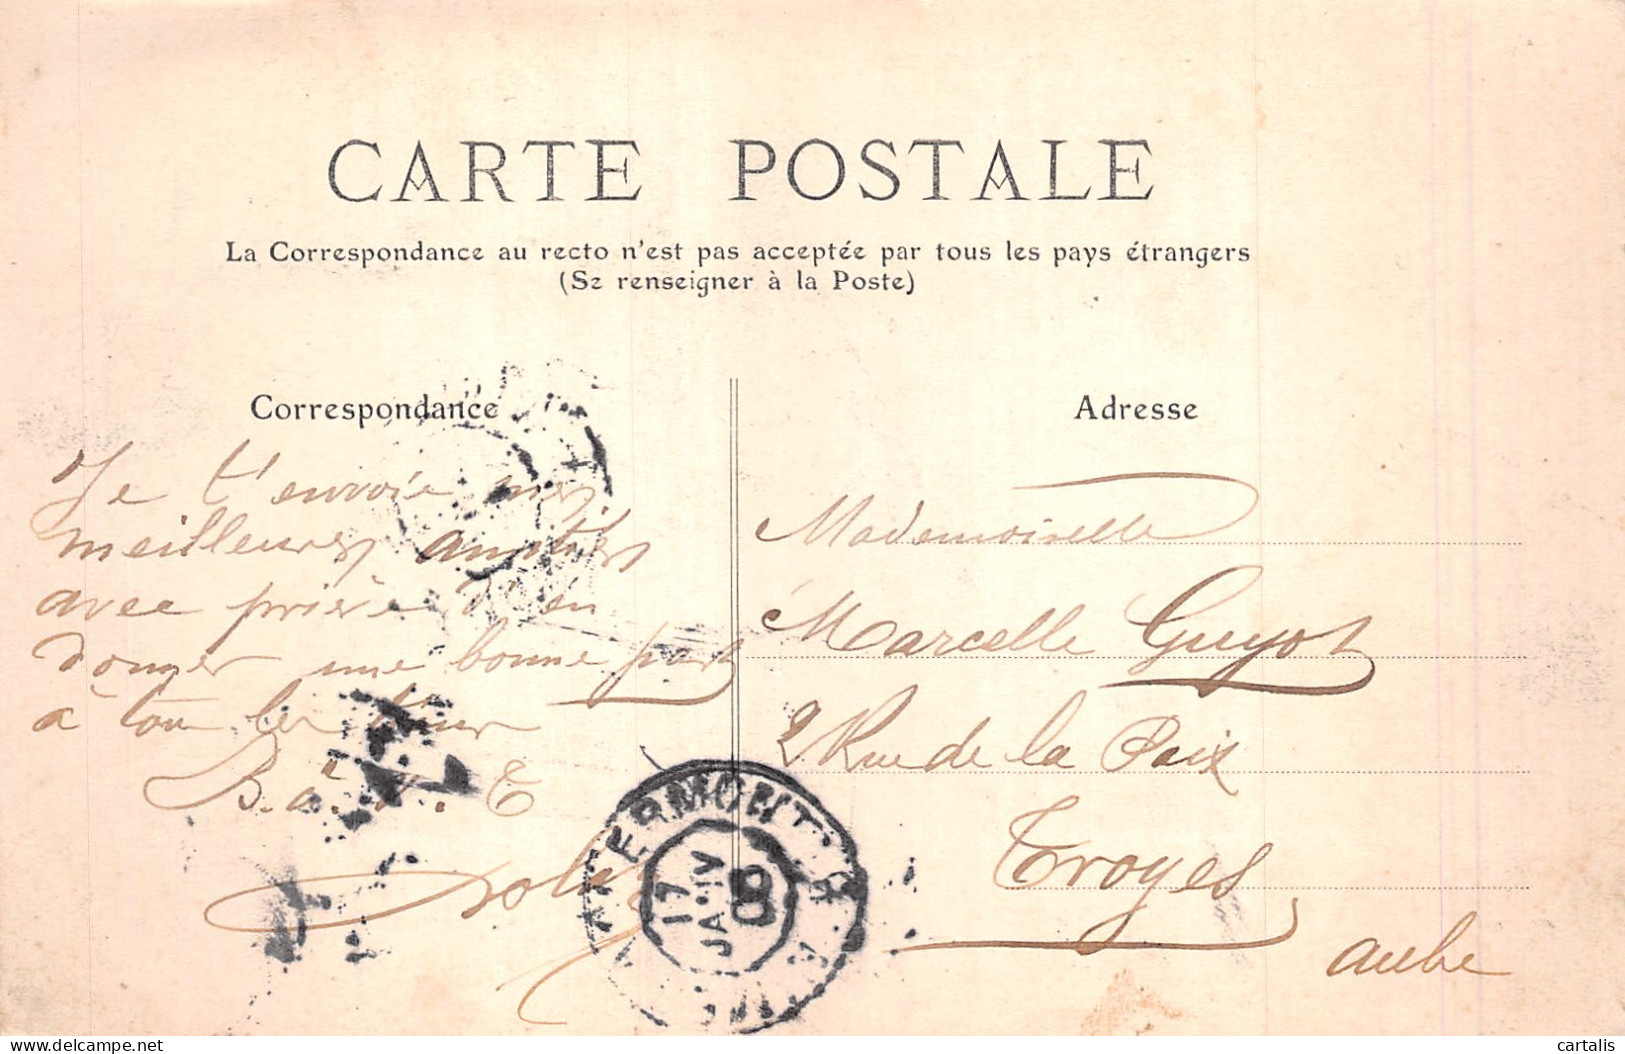 CARTE POSTALE
La Correspondance au recto n'est pas acceptée par tous les pays étrangers
(Se renseigner à la Poste)
Correspondance
Je t'envoie mes
meilleures amitiés
avec prière d'en
donner une bonne part
à tou
B. à. T. E
Adresse
Mademoiselle
Marcelle Guyot
2 Rue de la Paix
Troyes
aube
ERMONT
JANV
08
cartalis
www.delcampe.net